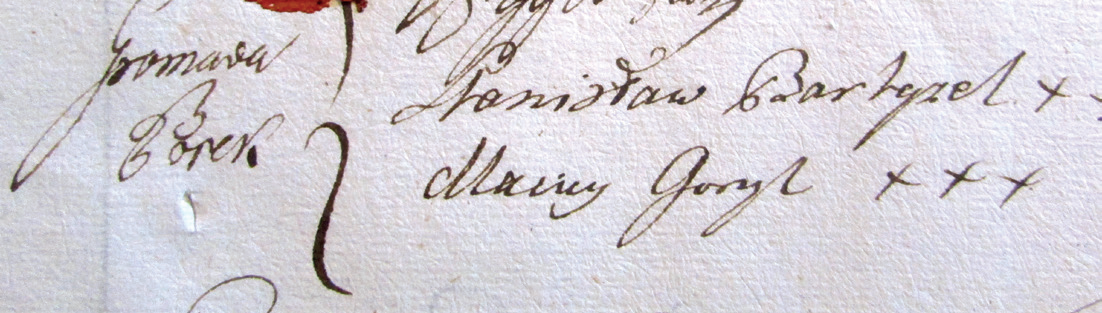 Gromada
Borek
Stanisław Bartyzel x
Maciey Goryl x x x